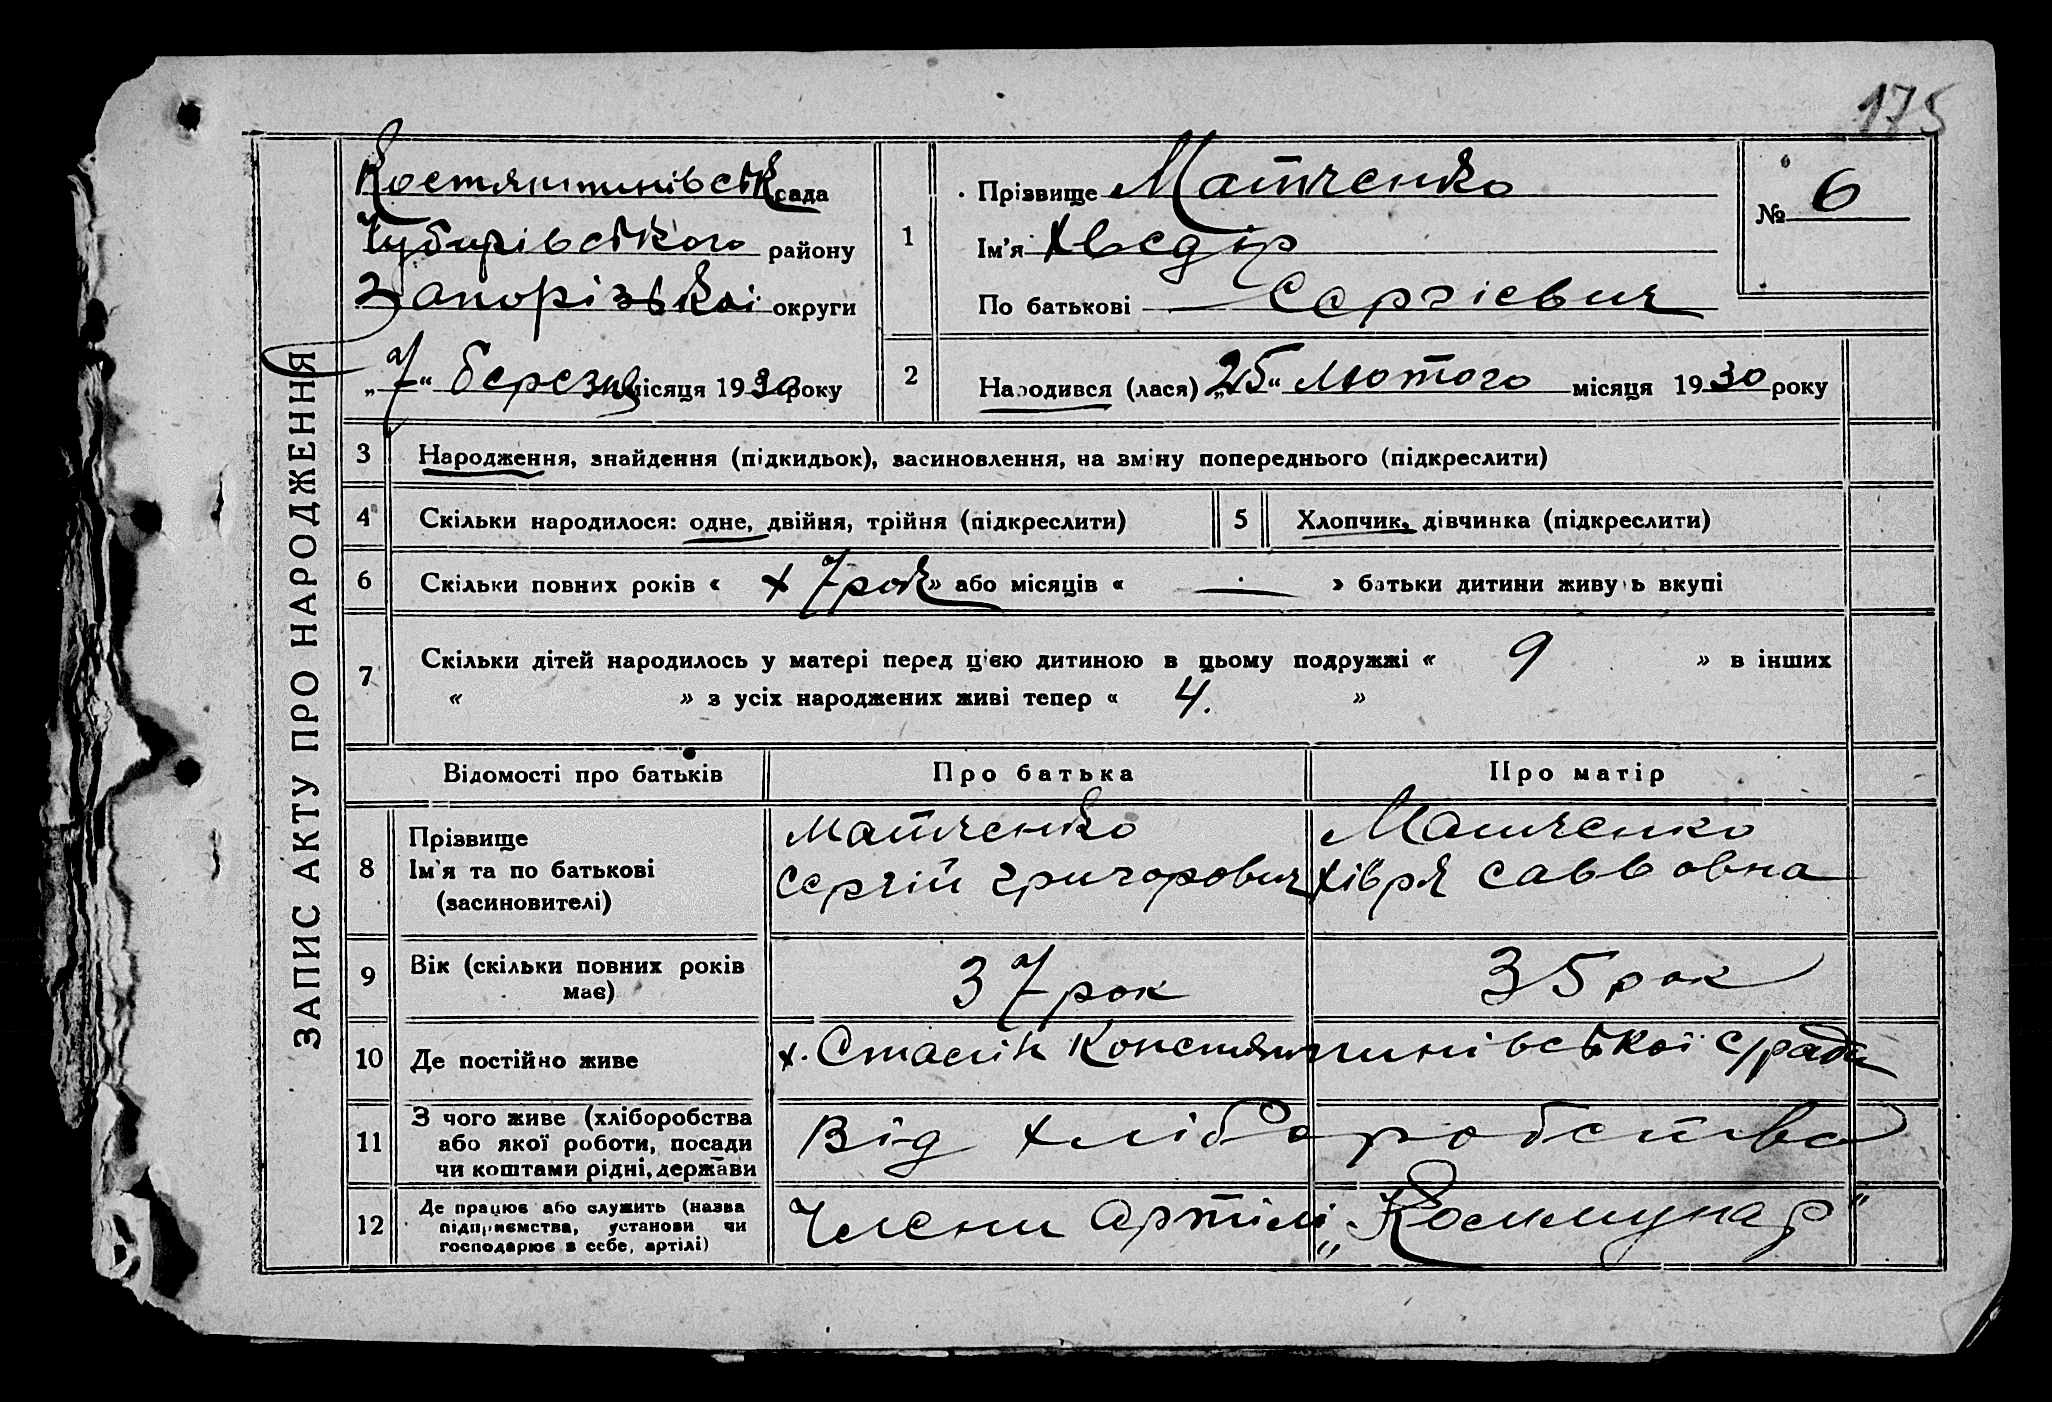 175
ЗАПИС АКТУ ПРО НАРОДЖЕННЯ
Костянтинівськ сада
Чубарівського району
Запорізької округи
„7“ березня місяця 1930 року
1
Прізвище Матченко
Ім’я Хведір
По батькові Сергієвич
№ 6
2
Народився (лася) „25“ Лютого місяця 1930 року
3 Народження, знайдення (підкидьок), засиновлення, на зміну попереднього (підкреслити)
4 Скільки народилося: одне, двійня, трійня (підкреслити)
5 Хлопчик, дівчинка (підкреслити)
6 Скільки повних років « 7 рок » або місяців « — » батьки дитини живуть вкупі
7 Скільки дітей народилось у матері перед цією дитиною в цьому подружжі « 9 » в інших
« » з усіх народжених живі тепер « 4. »
Відомості про батьків Про батька Про матір
8
Прізвище
Ім’я та по батькові
(засиновителі)
Матченко
Сергій Григорович
Матченко
Хівря Саввовна
9 Вік (скільки повних років
має)
37 рок
35 рок
10 Де постійно живе
х. Сталін Констянтинівської с/ради
11
З чого живе (хліборобства
або якої роботи, посади
чи коштами рідні, держави
Від хліборобства
12
Де працює або служить (назва
підприємства, установи чи
господарює в себе, артілі)
Члени Артілі „Коммунар“